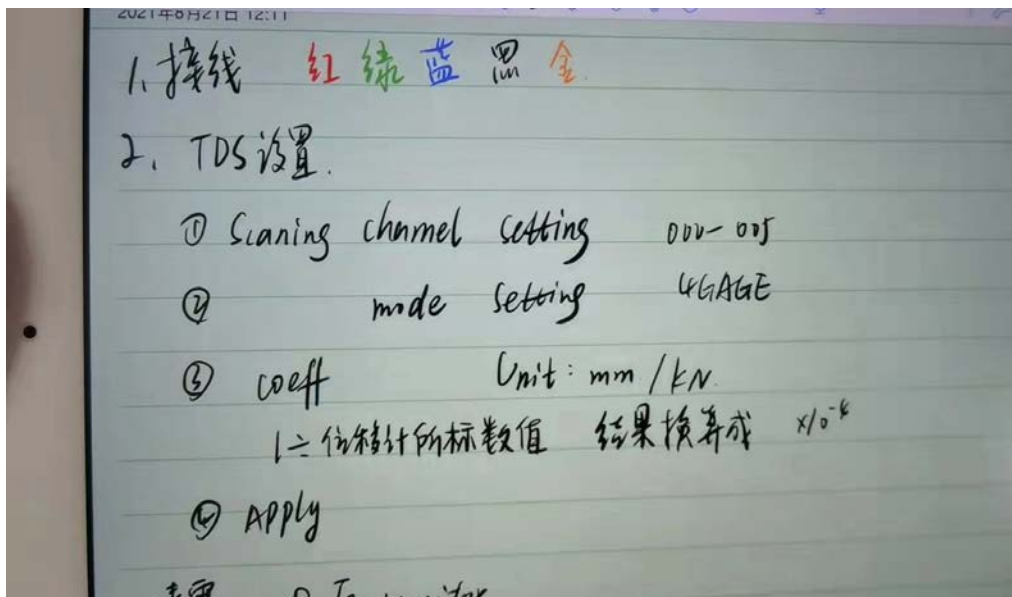 2021年8月21日 12:11
1、接线 红 绿 蓝 黑 金
2、TDS设置.
① Scaning channel setting 000-005
② mode setting 4GAGE
③ coeff Unit: mm/kN.
1÷位移计所标数值 结果换算成 ×10⁻⁴
④ Apply